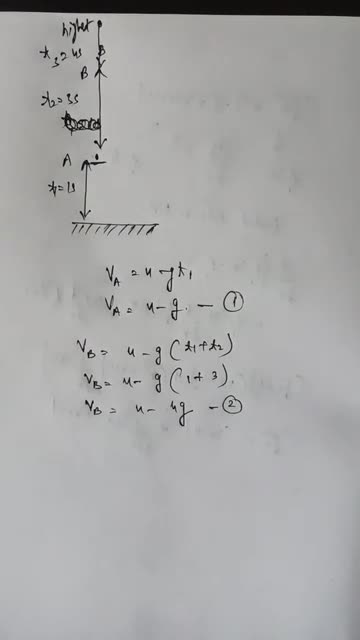 highest
t3 = 4s
B
B
t2 = 3s
A
t1 = 1s
VA = u - gt1
VA = u - g. - ①
VB = u - g (t1 + t2)
VB = u - g (1 + 3).
VB = u - 4g - ②